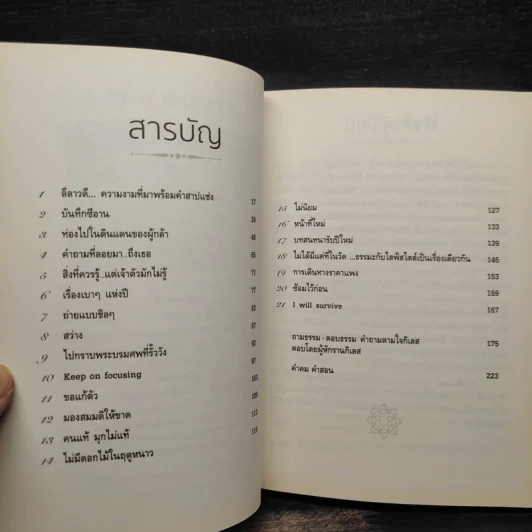 สารบัญ
1 ลีลาวดี... ความงามที่มาพร้อมคำสาปแช่ง
2 บันทึกซีอาน
3 ท่องไปในดินแดนของผู้กล้า
4 คำถามที่ลอยมา..ถึงเธอ
5 สิ่งที่ควรรู้..แต่เจ้าตัวมักไม่รู้
6 เรื่องเบาๆ แห่งปี 77
7 ถ่ายแบบชิลๆ
8 สว่าง
9 ไปกราบพระบรมศพที่รั้ววัง
10 Keep on focusing
11 ขอแก้ตัว
12 มองสมมติให้ขาด
13 คนแท้ มุกไม่แท้
14 ไม่มีดอกไม้ในฤดูหนาว
15 ไม่นิยม 127
16 หน้าที่ใหม่ 133
17 บทสนทนารับปีใหม่ 139
18 ไม่ได้มีแค่ที่ในวัด ...ธรรมะกับไลฟ์สไตล์เป็นเรื่องเดียวกัน 145
19 การเดินทางราคาแพง 153
20 ซ้อมไว้ก่อน 159
21 I will survive 167
ถามธรรม - ตอบธรรม คำถามตามใจกิเลส 175
ตอบโดยผู้หักรานกิเลส
คำคม คำสอน 223